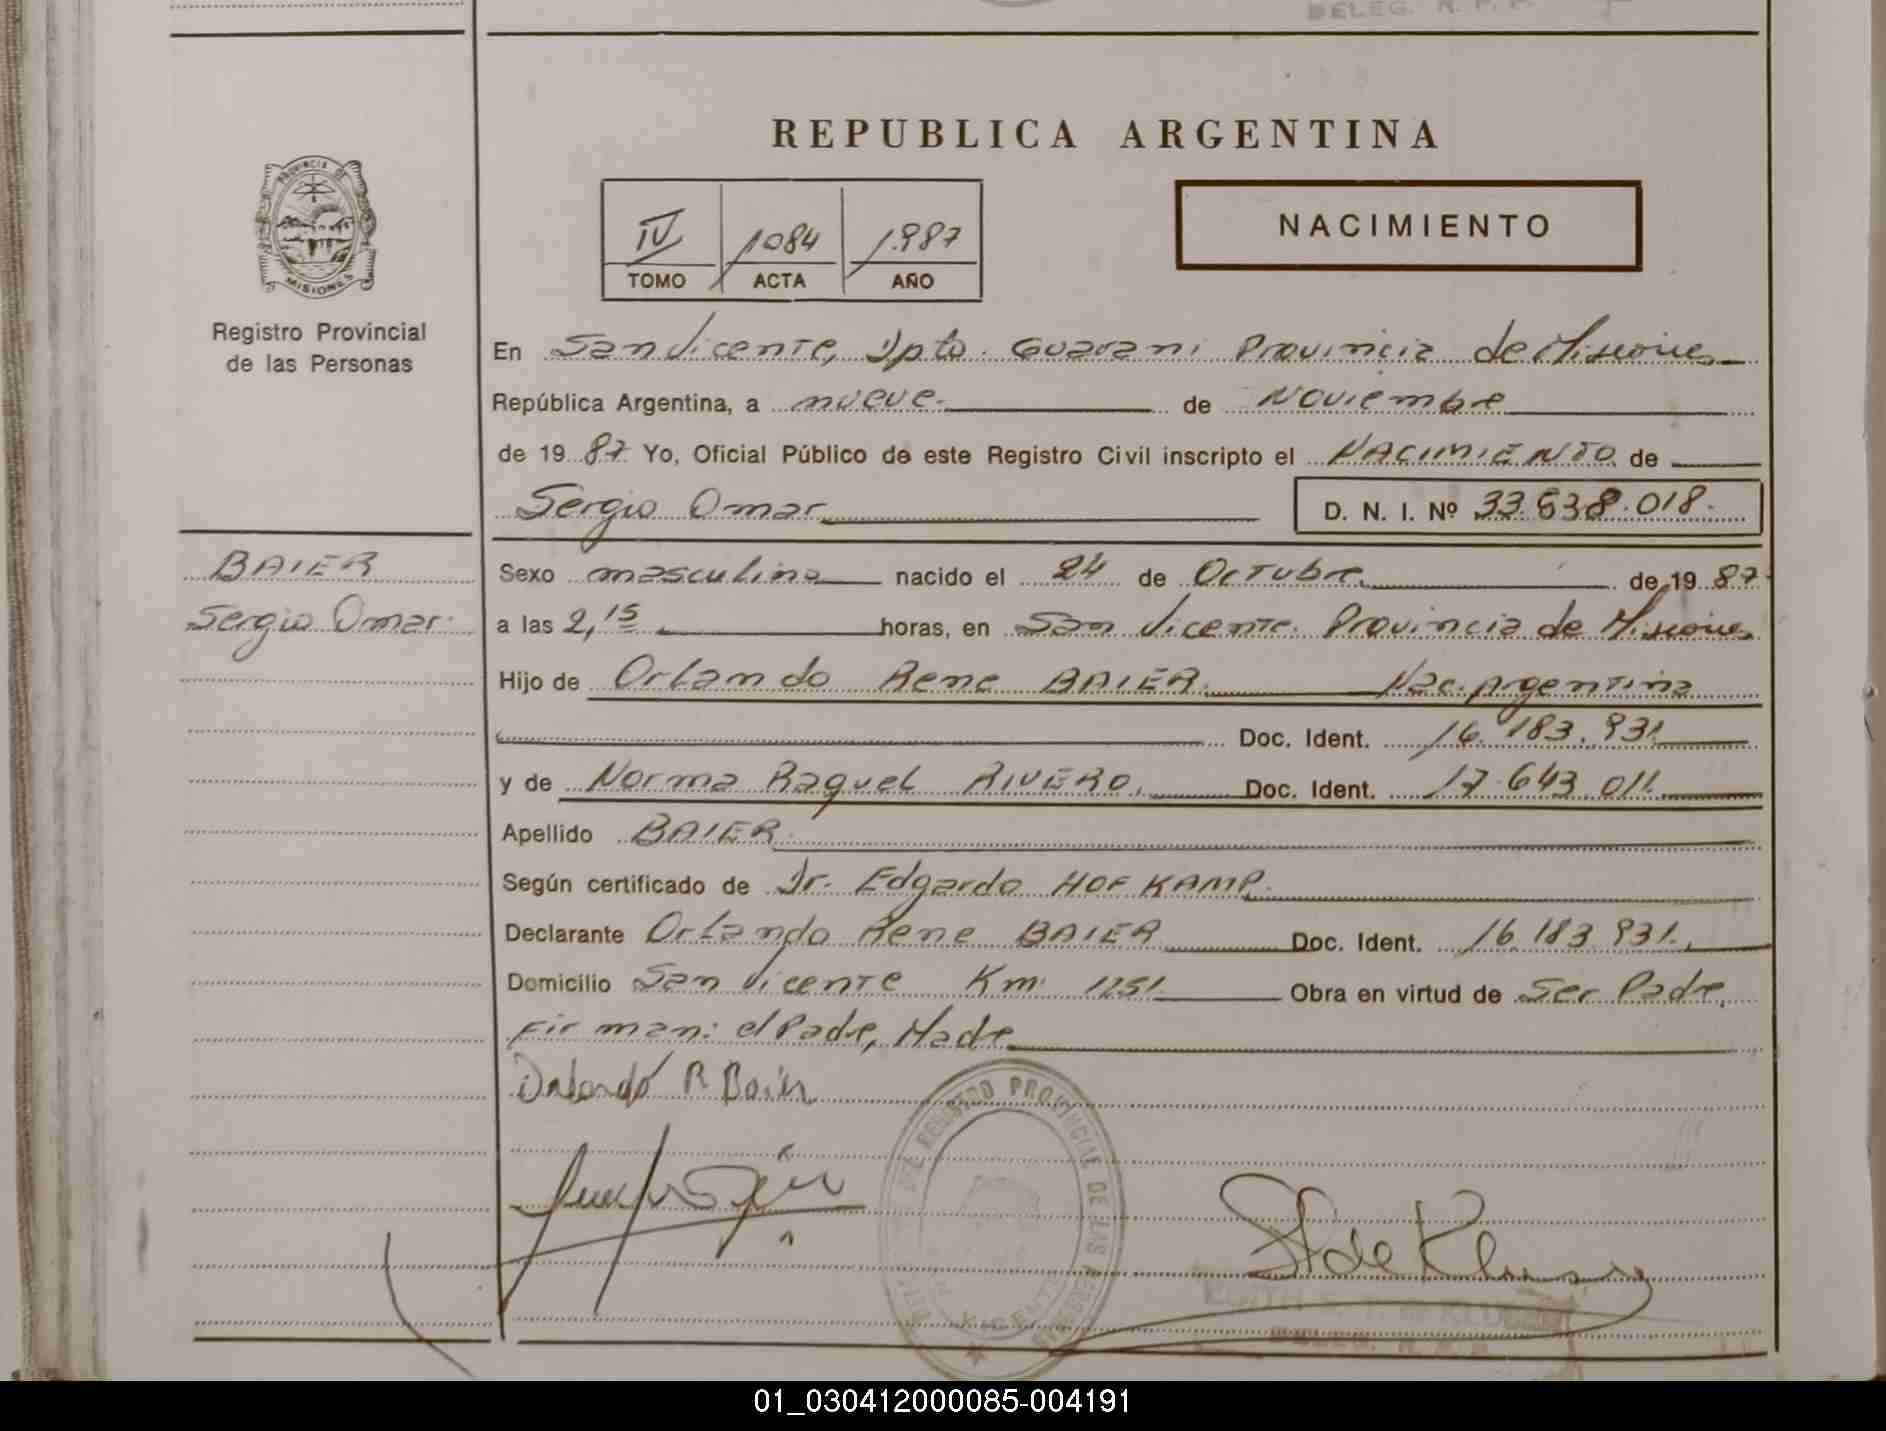 DELEG. R. P. P.
REPUBLICA ARGENTINA
PROVINCIA DE MISIONES
IV 1084 1987
TOMO ACTA AÑO
NACIMIENTO
Registro Provincial
de las Personas
En San Vicente, Dpto. Guarani Provincia de Misiones
República Argentina, a nueve. de Noviembre
de 1987 Yo, Oficial Público de este Registro Civil inscripto el NACIMIENTO de
Sergio Omar D. N. I. Nº 33.638.018.
BAIER
Sergio Omar.
Sexo masculino nacido el 24 de Octubre de 1987
a las 2,15 horas, en San Vicente. Provincia de Misiones
Hijo de Orlando Rene BAIER. Nac. Argentina
Doc. Ident. 16.183.931.
y de Norma Raquel RIVERO. Doc. Ident. 17.643.011.
Apellido BAIER.
Según certificado de Dr. Edgardo HOFKAMP.
Declarante Orlando Rene BAIER Doc. Ident. 16.183.931.
Domicilio San Vicente Km. 1251. Obra en virtud de Ser Padre.
Firman: el Padre, Madre
Orlando R Baier
REGISTRO PROVINCIAL DE LAS
VICENTE
DELEG. R. P. P.
01_030412000085-004191